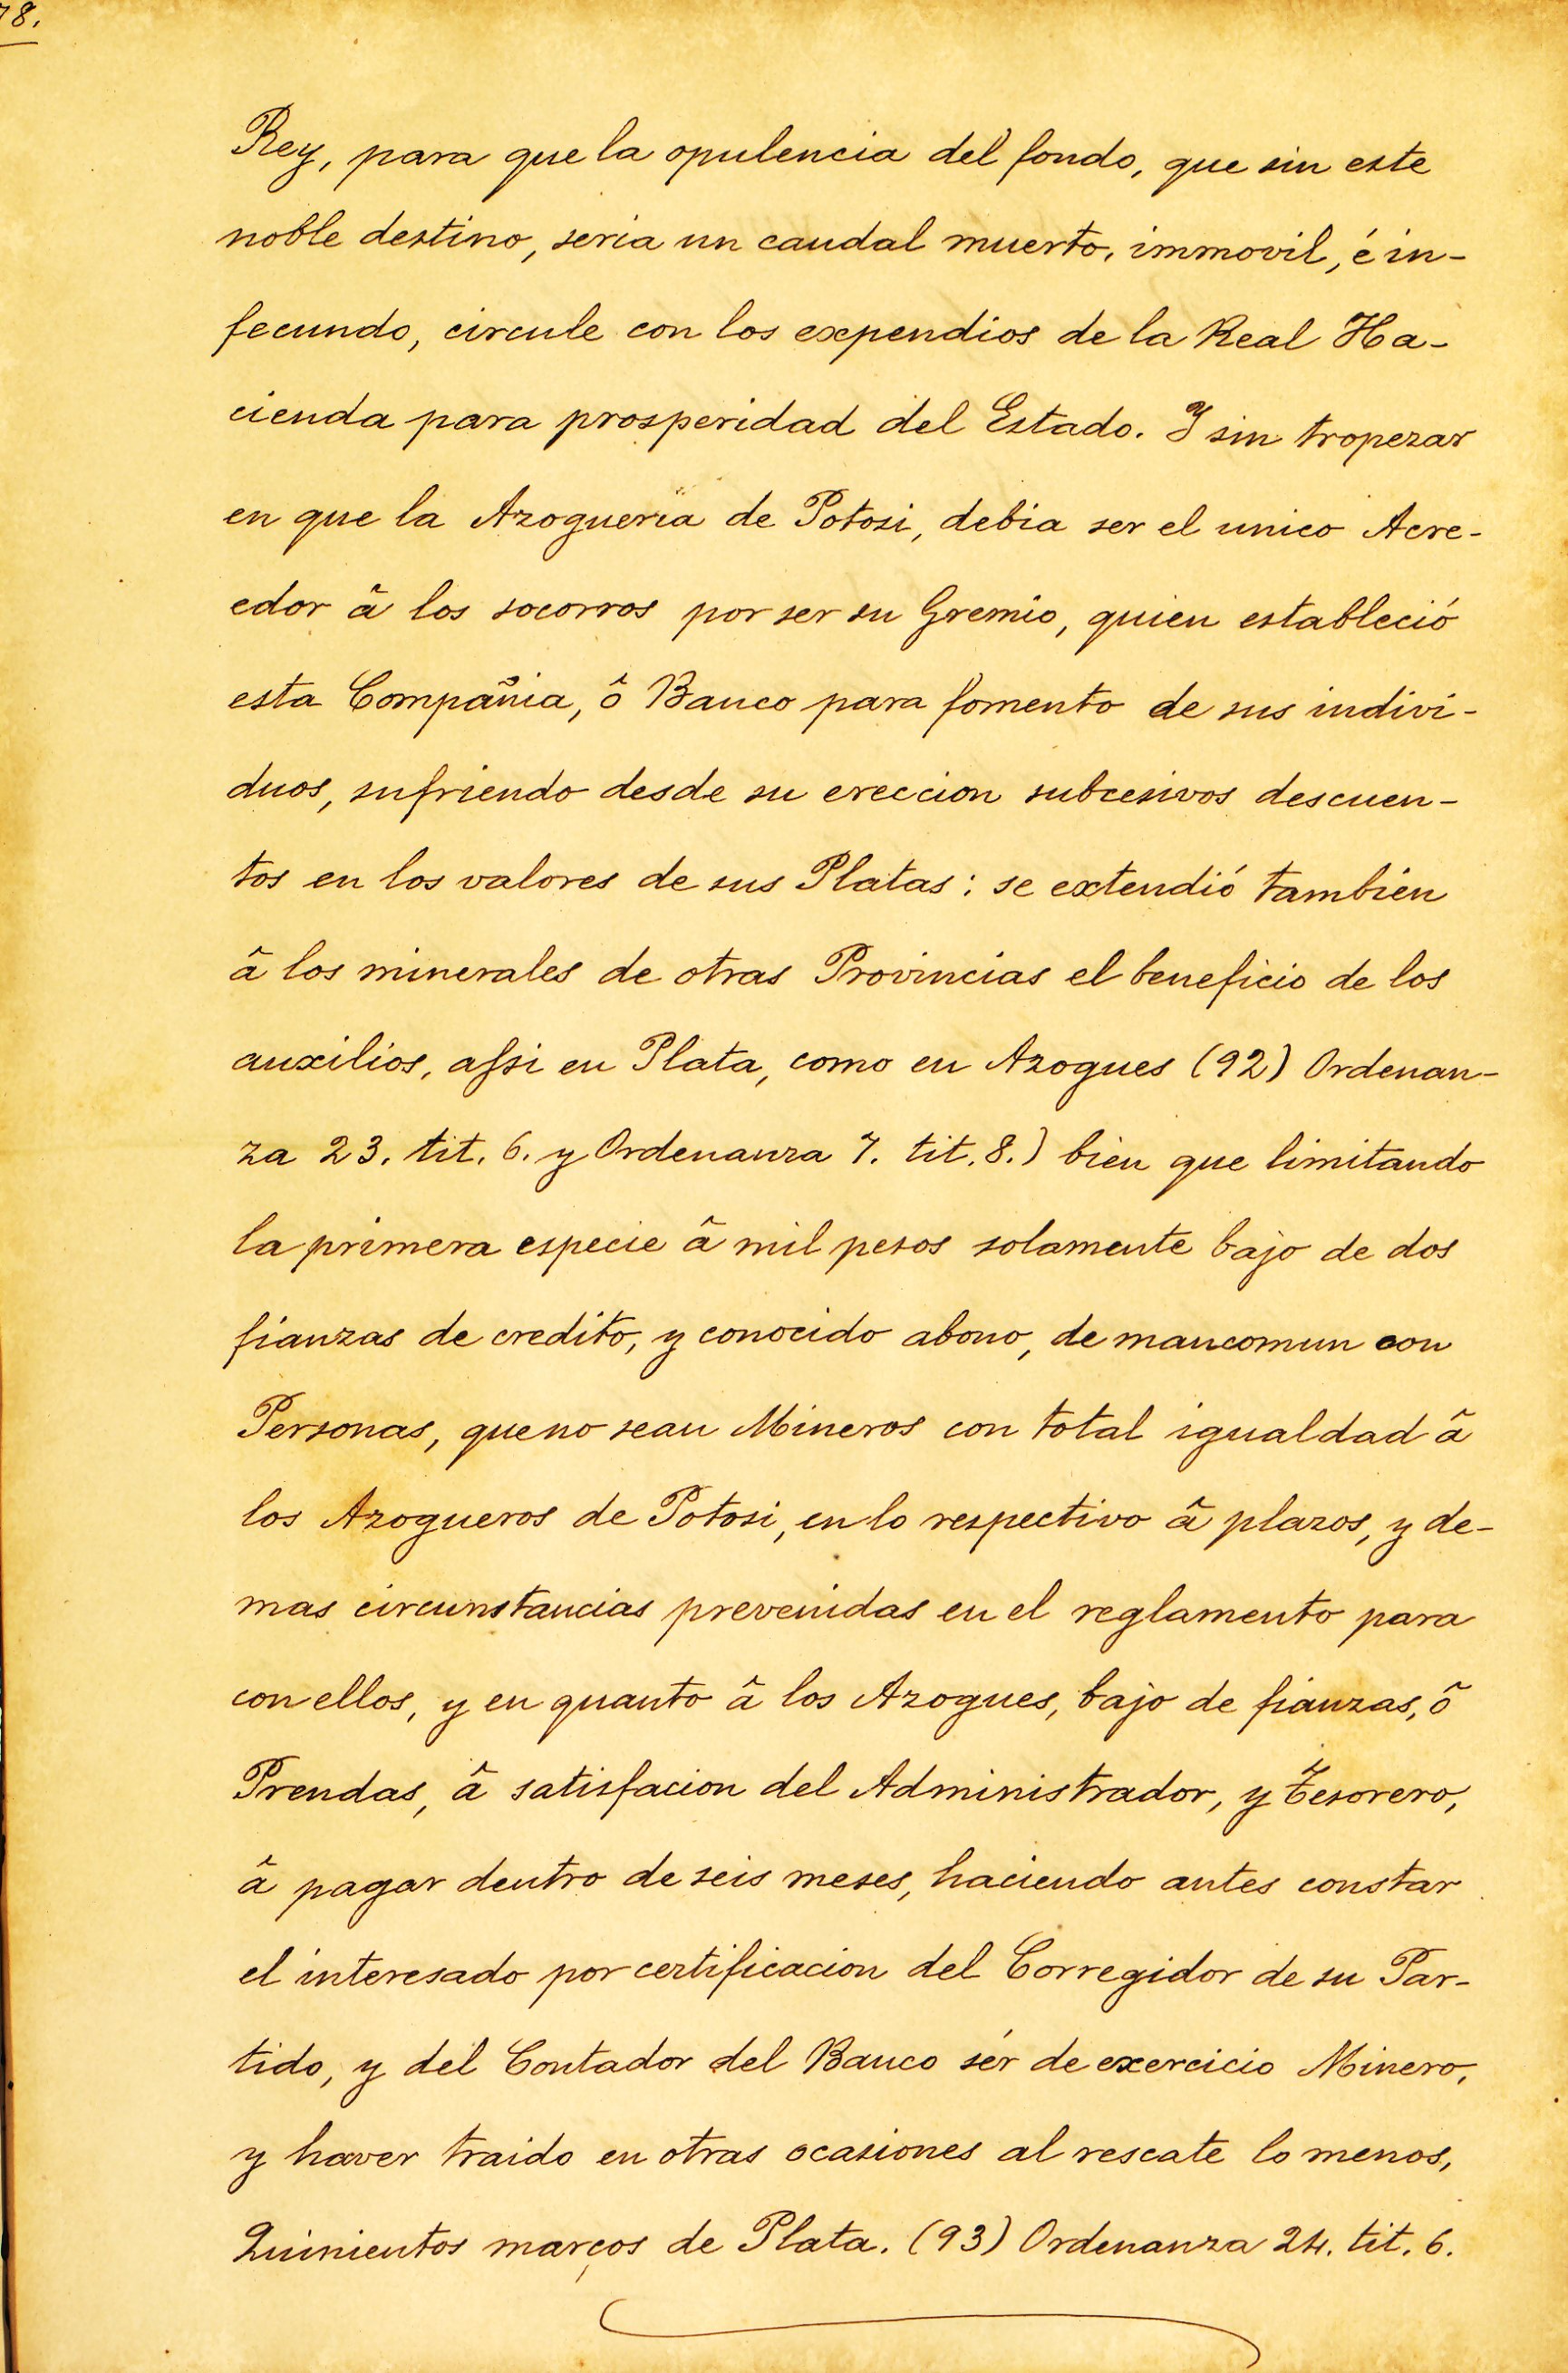 78.
Rey, para que la opulencia del fondo, que sin este
noble destino, seria un caudal muerto, immovil, é in-
fecundo, circule con los expendios de la Real Ha-
cienda para prosperidad del Estado. Y sin tropezar
en que la Azogueria de Potosi, debia ser el unico Acre-
edor â los socorros por ser su Gremio, quien estableció
esta Compañia, ô Banco para fomento de sus indivi-
duos, sufriendo desde su ereccion subcesivos descuen-
tos en los valores de sus Platas: se extendió tambien
â los minerales de otras Provincias el beneficio de los
auxilios, assi en Plata, como en Azogues (92) Ordenan-
za 23. tit. 6. y Ordenanza 7. tit. 8.) bien que limitando
la primera especie â mil pesos solamente bajo de dos
fianzas de credito, y conocido abono, de mancomun con
Personas, que no sean Mineros con total igualdad â
los Azogueros de Potosi, en lo respectivo â plazos, y de-
mas circunstancias prevenidas en el reglamento para
con ellos, y en quanto â los Azogues, bajo de fianzas, ô
Prendas, â satisfacion del Administrador, y Tesorero,
â pagar dentro de seis meses, haciendo antes constar
el interesado por certificacion del Corregidor de su Par-
tido, y del Contador del Banco sér de exercicio Minero,
y haver traido en otras ocasiones al rescate lo menos,
Quinientos marcos de Plata. (93) Ordenanza 24. tit. 6.